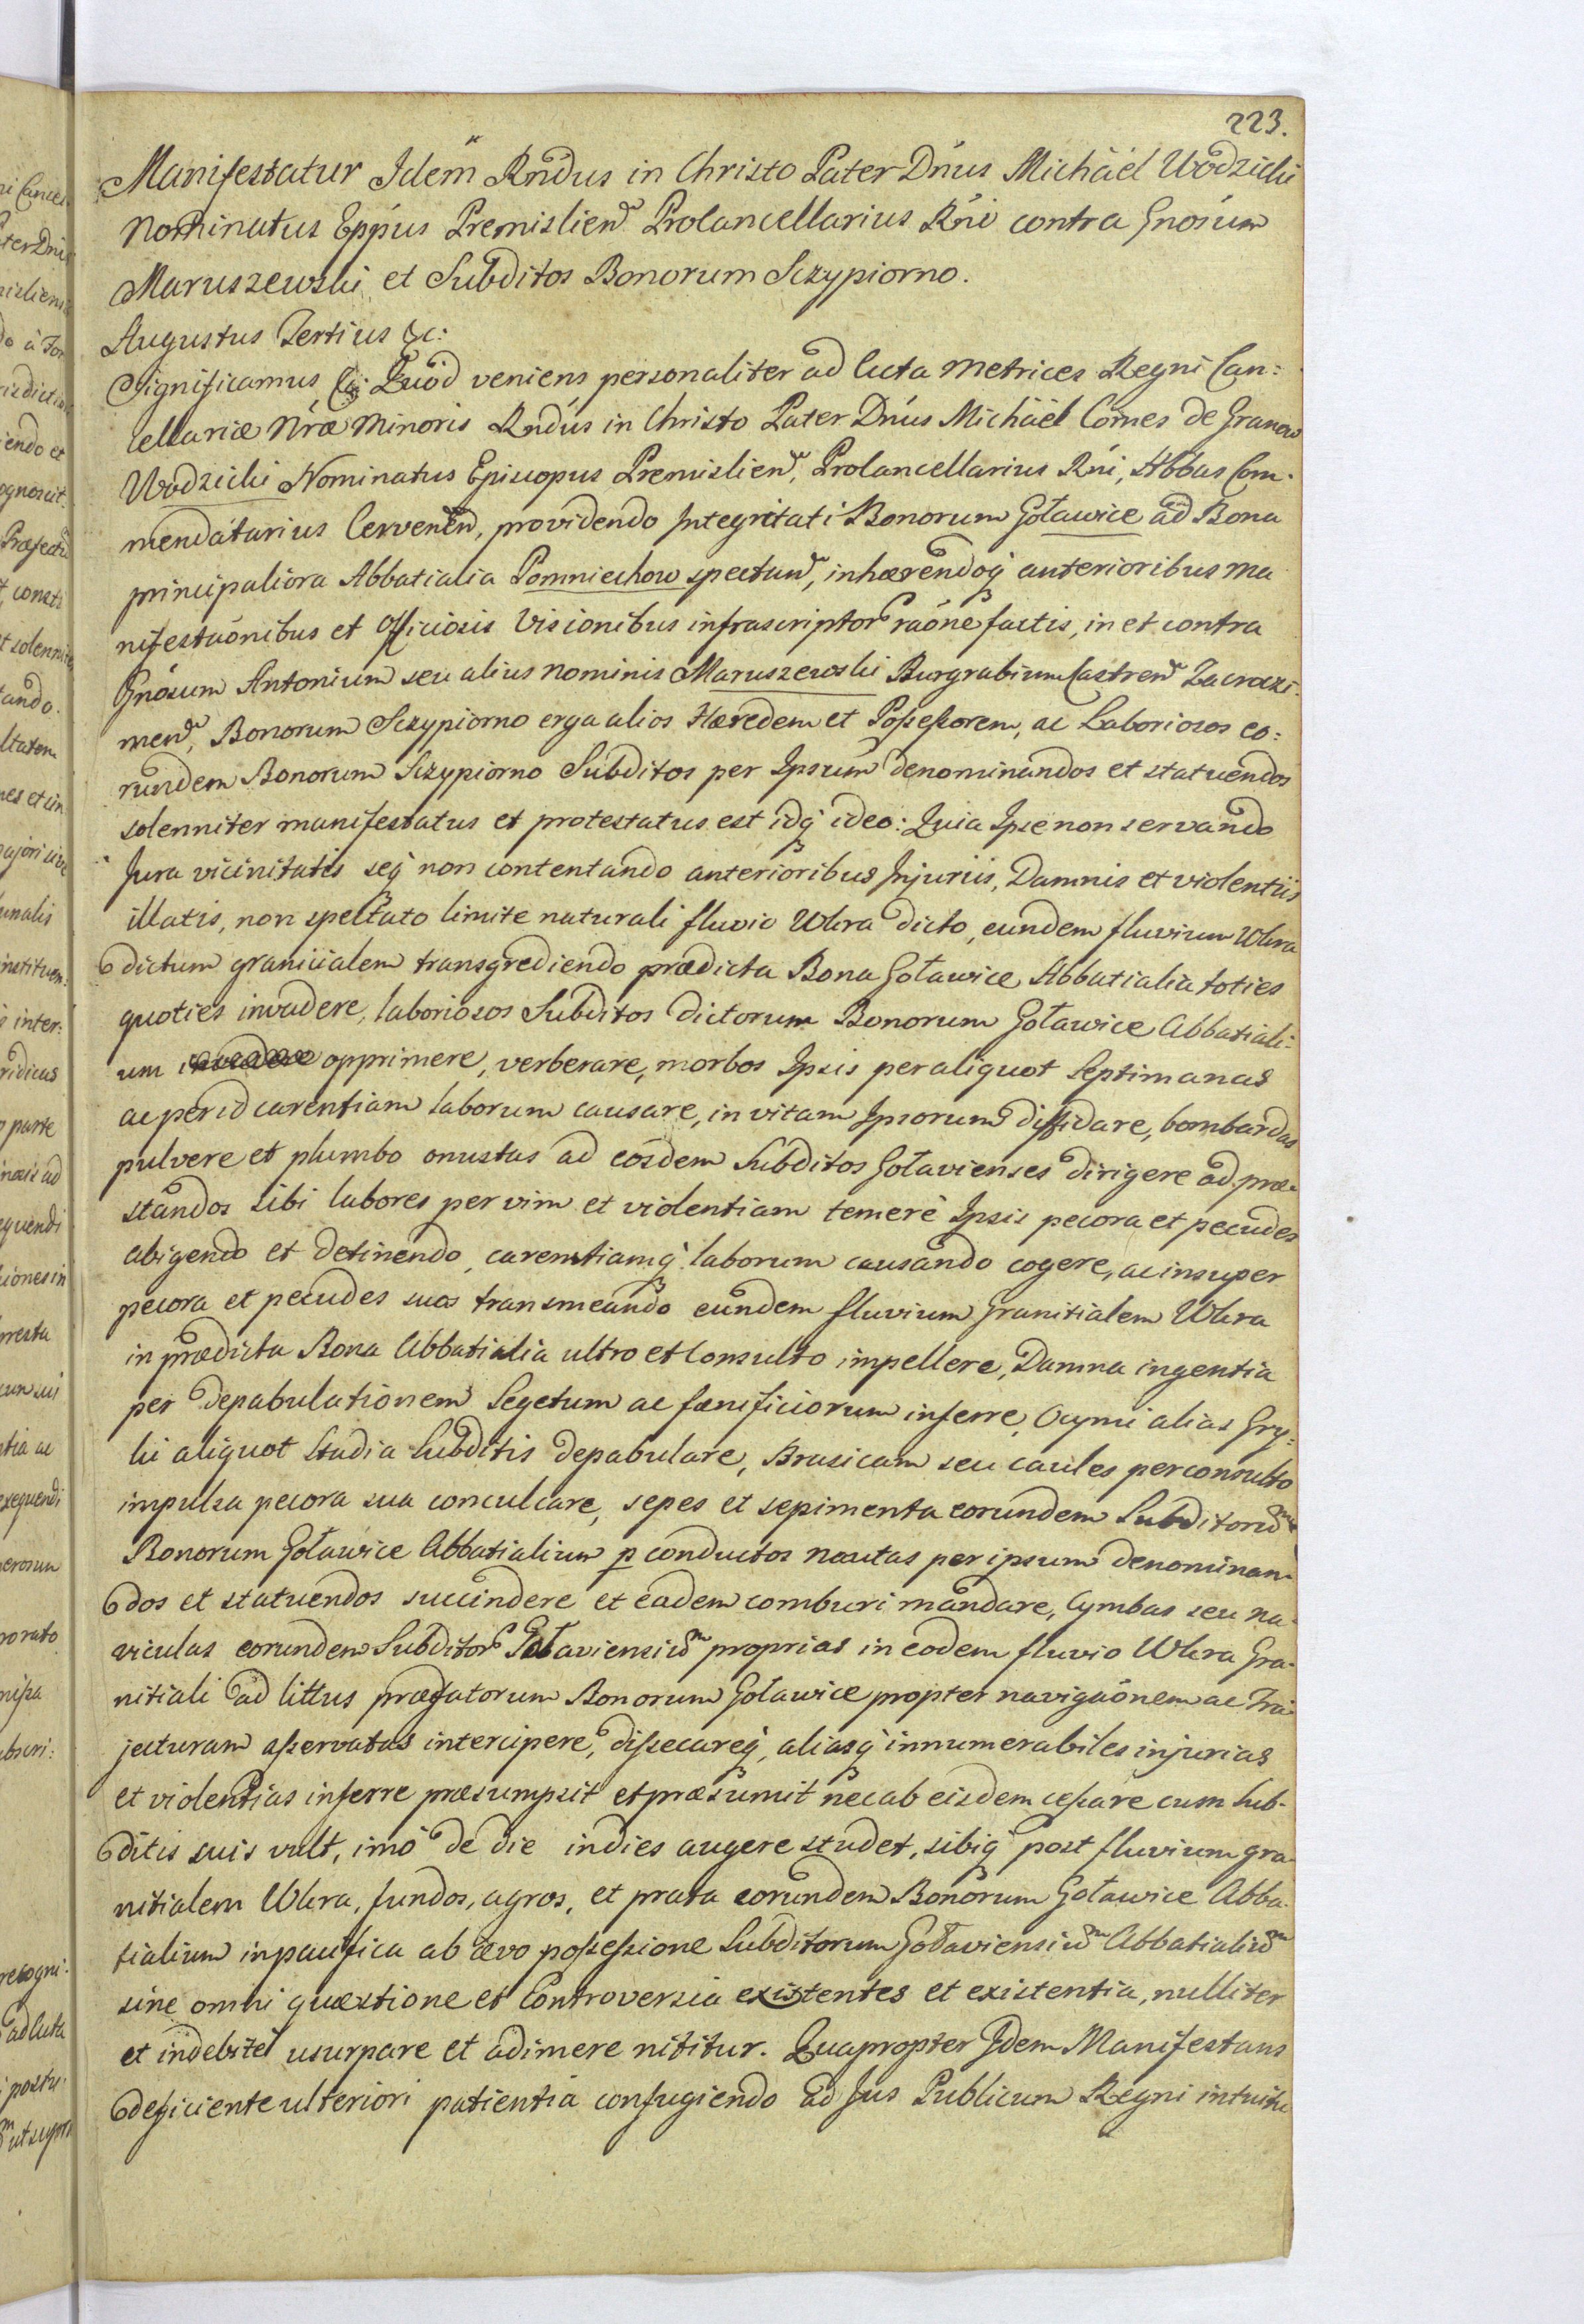 223.
Manifestatur Idem Rndus in Christo Pater Dnus Michäel Wodzicki
Nominatus Eppus Premislien Procancellarius Rni contra Gnosum
Maruszewski et Subditos Bonorum Sczypiorno.
Augustus Tertius &c:
Significamus &c: Quod veniens personaliter ad Acta Metrices Regni Can:
cellariæ Nræ Minoris Rndus in Christo Pater Dnus Michäel Comes de Granow
Wodzicki Nominatus Episcopus Premislien, Procancellarius Rni, Abbas Com-
mendatarius Cervenen, providendo Integritati Bonorum Goławice ad Bona
principaliora Abbatialia Pomniechow spectan, inhærendoq anterioribus ma
nifestaonibus et Officiosis Visionibus infrascriptor raone factis, in et contra
Gnosum Antonium seu alius nominis Maruszewski Burgrabium Castren Zacroczi-
men, Bonorum Sczypiorno erga alios Hæredem et Possessorem, ac Laboriosos eo:
rundem Bonorum Sczypiorno Subditos per Ipsum denominandos et statuendos
solenniter manifestatus et protestatus est idq ideo: Quia Ipse non servando
Jura vicinitatis seq non contentando anterioribus Injuriis, Damnis et violentiis
illatis, non spectato limite naturali fluvio Wkra dicto, eundem fluvium Wkra
dictum granicialem transgrediendo prædicta Bona Goławice Abbatialia toties
quoties invadere, laboriosos Subditos dictorum Bonorum Goławice Abbatiali-
um invadere opprimere, verberare, morbos Ipsis per aliquot Septimanas
ac per id carentiam laborum causare, in vitam Ipsorum diffidare, bombardas
pulvere et plumbo onustas ad eosdem Subditos Goławienses dirigere ad præ-
standos sibi labores per vim et violentiam temerè Ipsis pecora et pecudes
abigendo et detinendo, carentiamq laborum causando cogere, ac insuper
pecora et pecudes suas transmeando eundem fluvium Granitialem Wkra
in prædicta Bona Abbatialia ultro et Consulto impellere, Damna ingentia
per depabulationem Segetum ac fænificiorum inferre, Ocymi alias Gry-
ki aliquot Stadia Subditis depabulare, Brasicam seu caules per consulto
impulsa pecora sua conculcare, sepes et sepimenta eorundem Subditorum
Bonorum Goławice Abbatialium p conductos nautas per ipsum denominan-
dos et statuendos succindere et eadem comburi mandare, Cymbas seu na-
viculas eorundem Subditor Goławiensium proprias in eodem fluvio Wkra Gra-
nitiali ad littus præfatorum Bonorum Goławice propter navigaonem ac Tra
jecturam asservatas intercipere, dissecareq, aliasq innumerabiles injurias
et violentias inferre præsumpsit et præsumit nec ab eisdem cessare cum Sub-
ditis suis vult, imò de die indies augere studet, sibiq post fluvium gra-
nitialem Wkra, fundos, agros, et prata eorundem Bonorum Goławice Abba-
tialium in pacifica ab ævo possessione Subditorum Goławiensium Abbatialium
sine omni quæstione et Controversia existentes et existentia, nulliter
et indebitè usurpare et adimere nititur. Quapropter Idem Manifestans
deficiente ulteriori patientiâ confugiendo ad Jus Publicum Regni intuitu